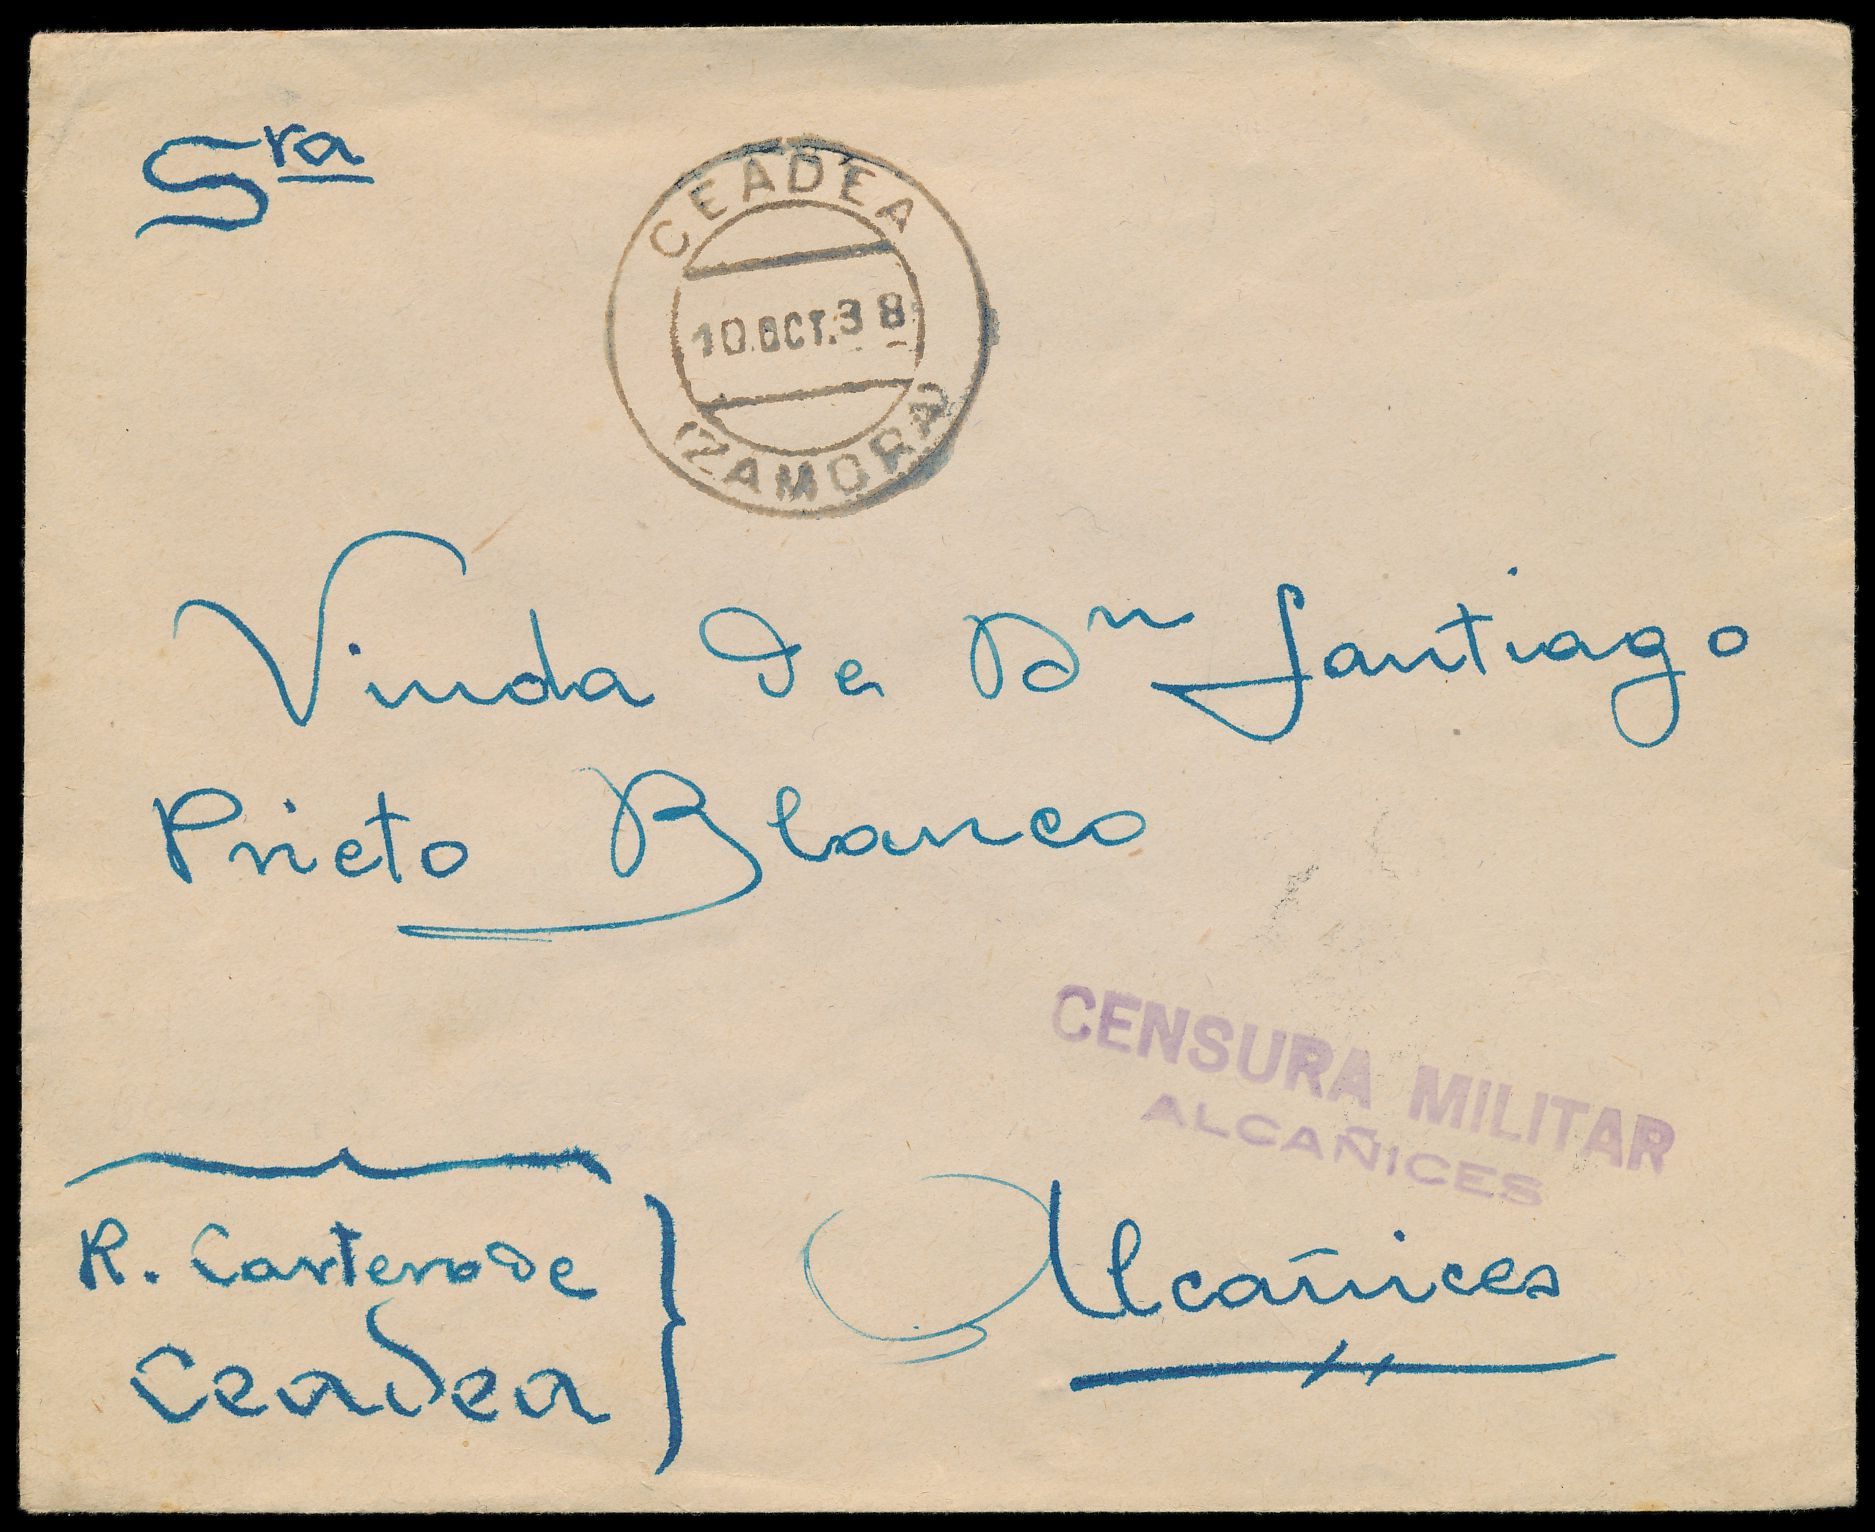 Sra
CEADEA
10.OCT.38
(ZAMORA)
Viuda de Dn Santiago
Prieto Blanco
CENSURA MILITAR
ALCAÑICES
R. Cartero de
Ceadea
Alcañices